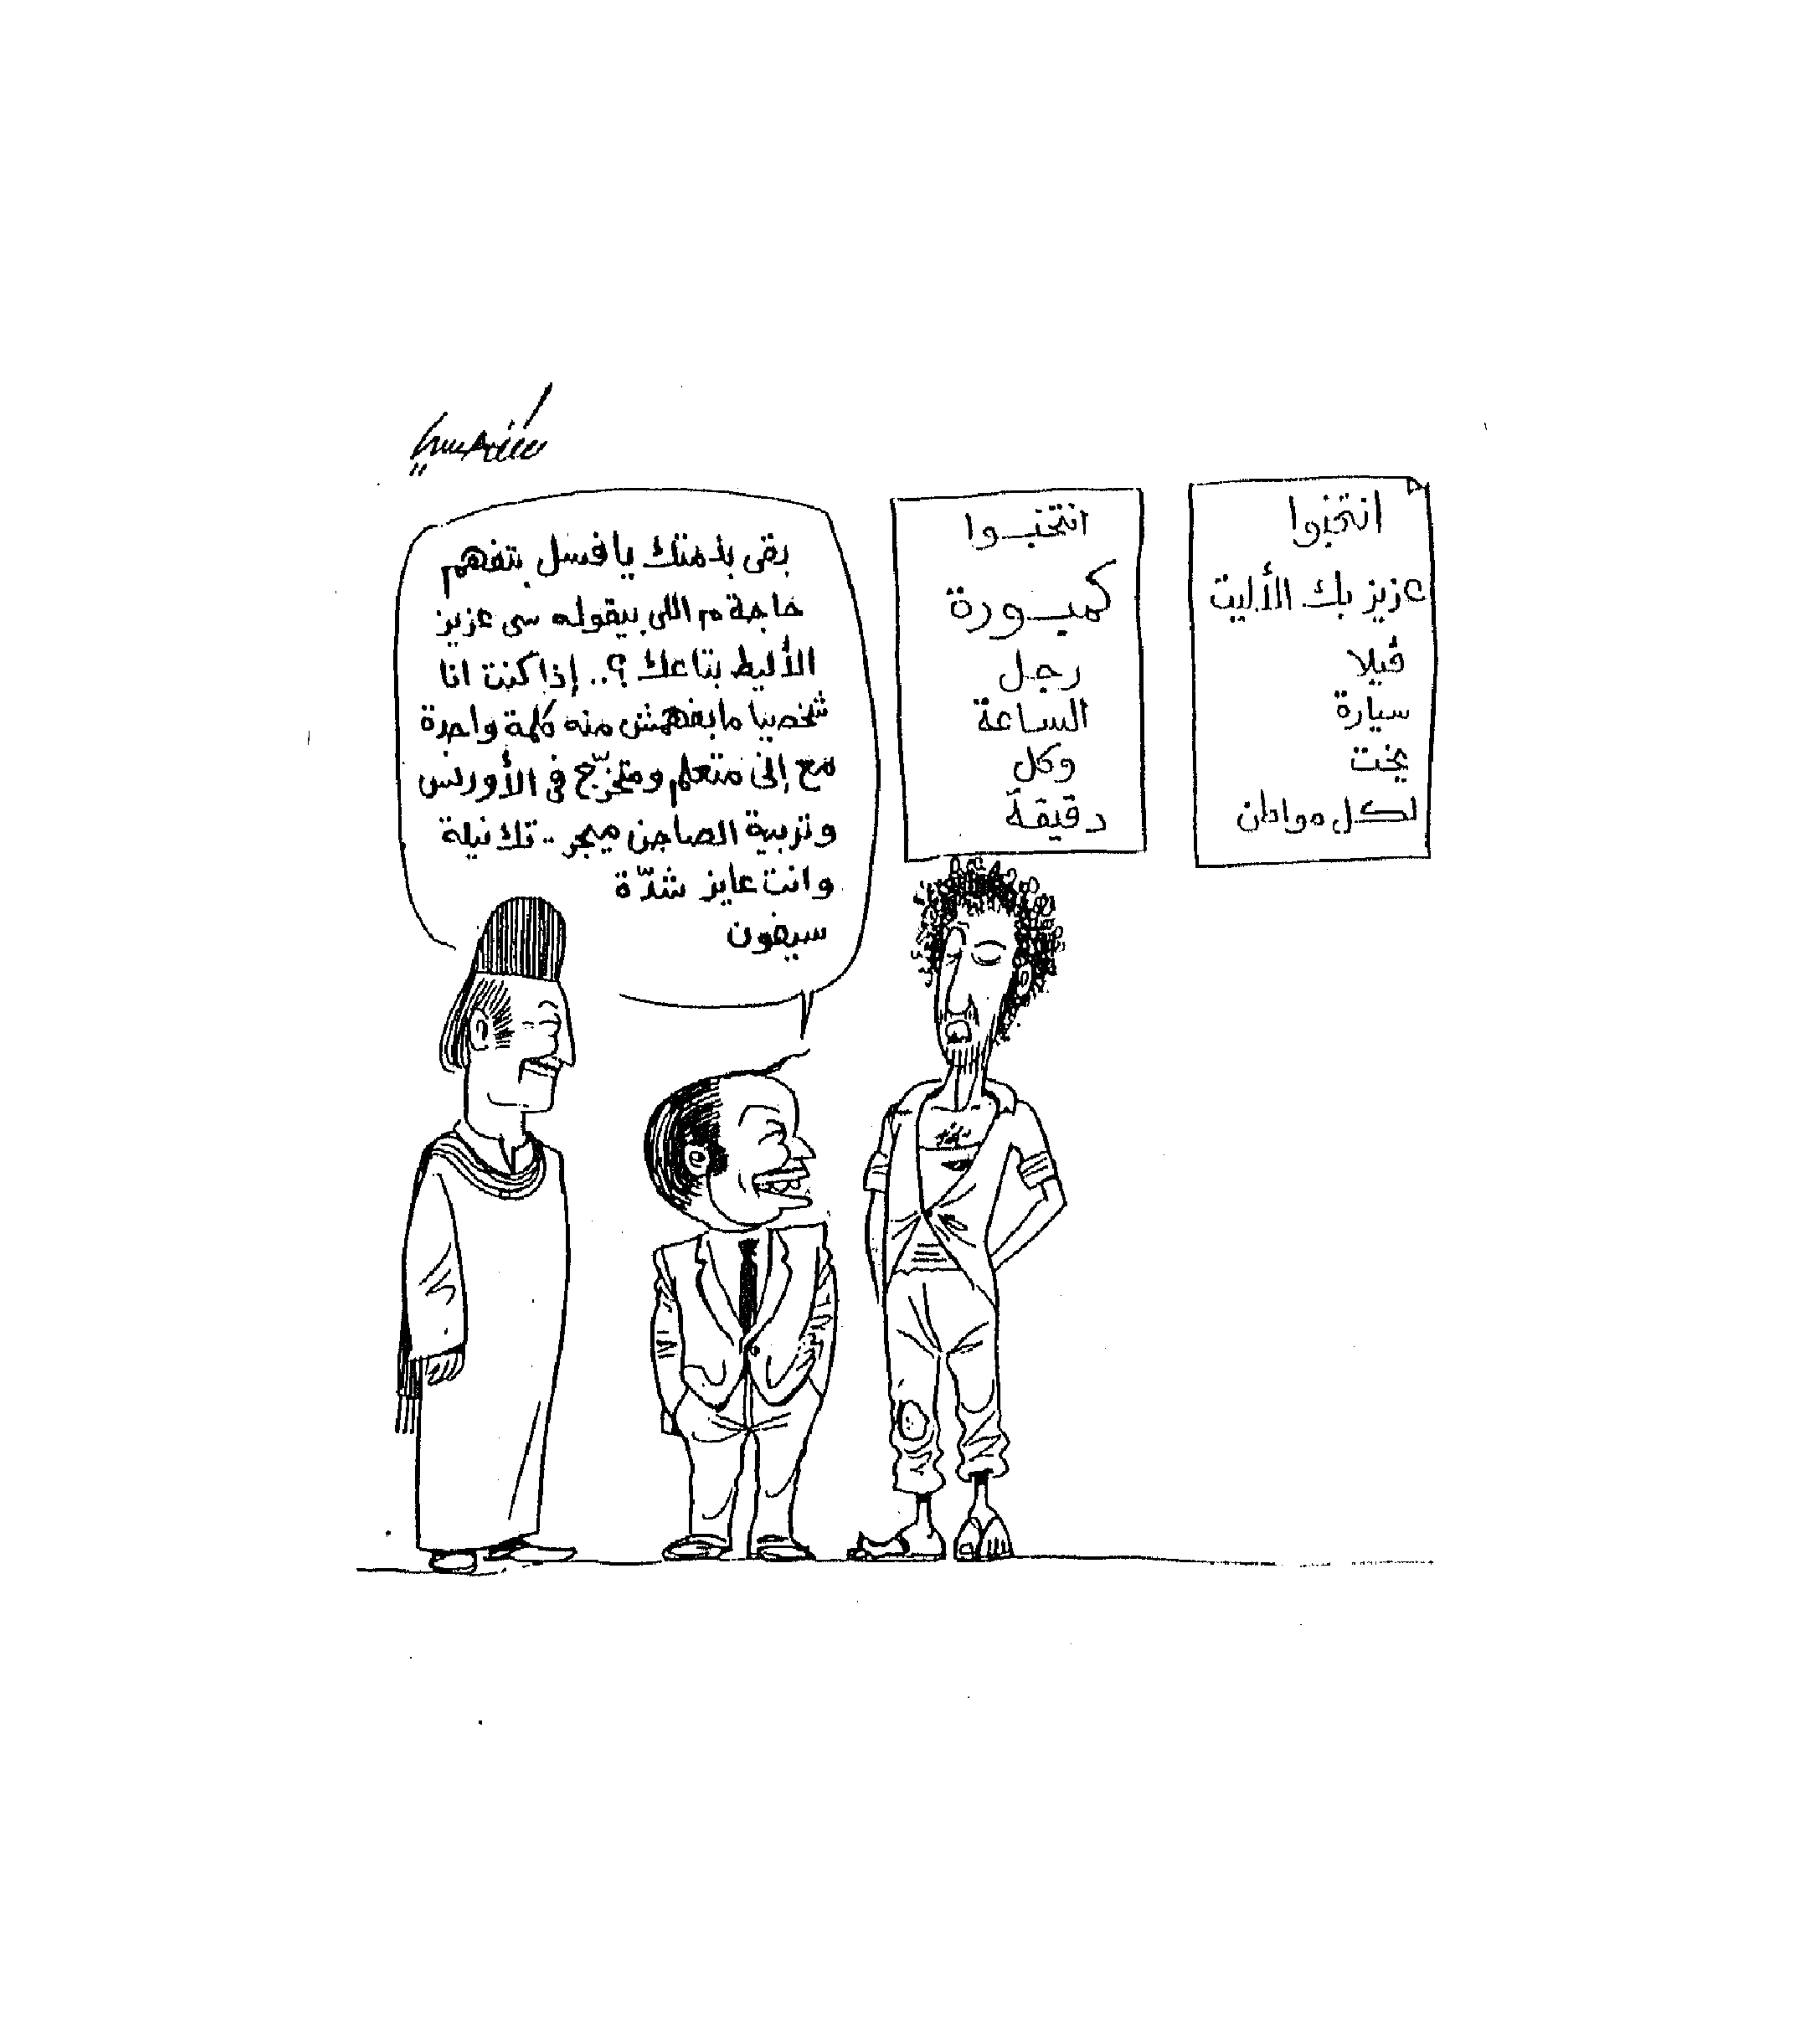 انتخبوا
عزيز بك الأليت
ڤيلا
سيارة
يخت
لكل مواطن
انتخبوا
كمبورة
رجل
الساعة
وكل
دقيقة
بقى بذمتك يا فسل بتفهم
حاجة م اللى بيقوله سى عزيز
الأليط بتاعك ؟.. إذا كنت انا
شخصيا ما بفهمش منه كلمة واحدة
مع إنى متعلم ومتخرّج فى الأورنس
وتربية الصاجن ميجر .. تك نيلة
وانت عايز شدّة
سيفون